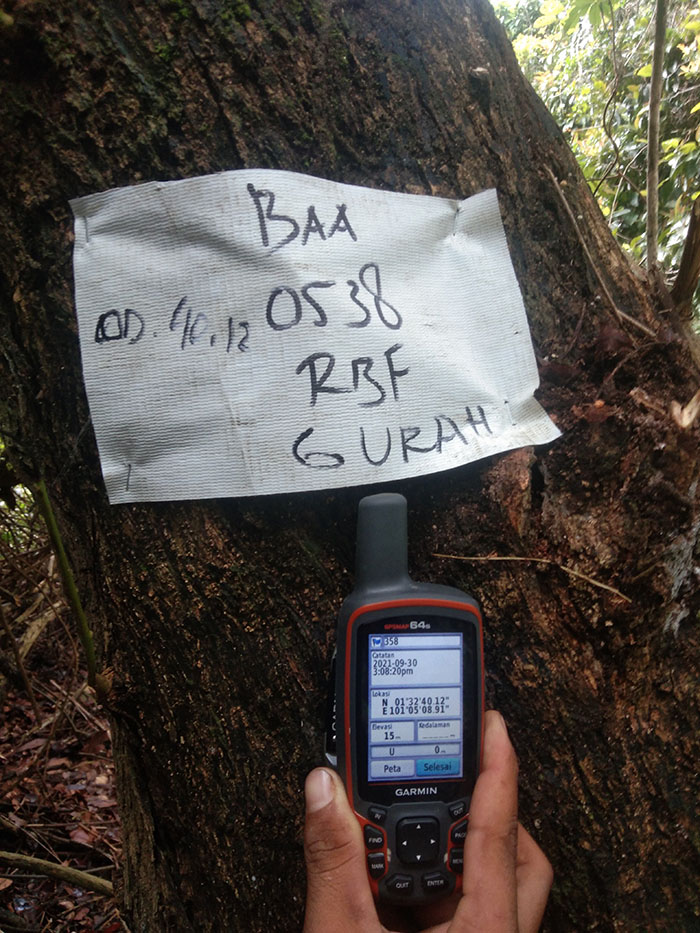 BAA
0538
RBF
GURAH
GPSMAP 64s
358
Catatan
2021-09-30
3:08:20pm
Lokasi
N 01°32'40.12"
E 101°05'08.91"
Elevasi
Kedalaman
15m
U
0m
Peta
Selesai
GARMIN
IN
OUT
FIND
MARK
QUIT
ENTER